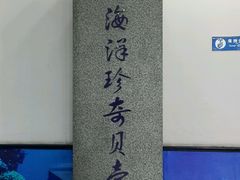 海洋珍奇贝壳